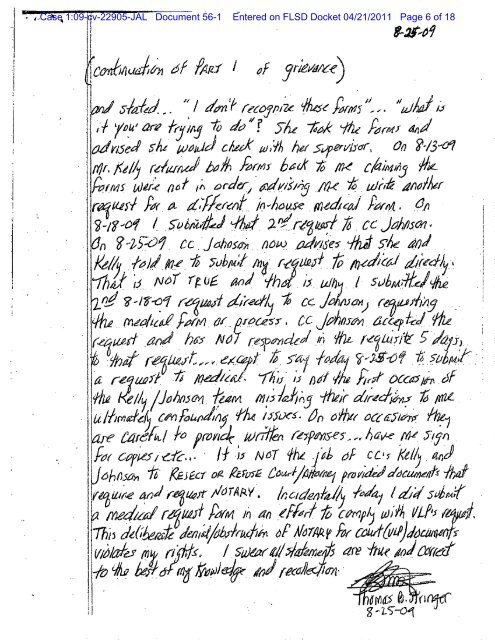 Case 1:09-cv-22905-JAL Document 56-1 Entered on FLSD Docket 04/21/2011 Page 6 of 18
8-25-09
(continuation of PART 1 of grievance)
and stated... "I don't recognize these forms"... "what is
it 'you' are trying to do"? She took the forms and
advised she would check with her supervisor. On 8-13-09
Mr. Kelly returned both forms back to me claiming the
forms were not in order, advising me to write another
request for a different in-house medical form. On
8-18-09 I submitted that 2nd request to CC Johnson.
On 8-25-09 CC Johnson now advises that she and
Kelly told me to submit my request to medical directly.
That is NOT TRUE and that is why I submitted the
2nd 8-18-09 request directly to CC Johnson, requesting
the medical form or process. CC Johnson accepted the
request and has NOT responded in the requisite 5 days,
to that request.... except to say today 8-25-09 to submit
a request to medical. This is not the first occasion of
the Kelly/Johnson team mistating their directions to me
ultimately confounding the issues. On other occasions they
are careful to provide written responses... have me sign
for copies, etc... It is NOT the job of CC's Kelly and
Johnson to REJECT OR REFUSE Court/Attorney provided documents that
require and request NOTARY. Incidentally today I did submit
a medical request form in an effort to comply with VLP's request.
This deliberate denial/obstruction of NOTARY for court (VLP) documents
violates my rights. I swear all statements are true and correct
to the best of my knowledge and recollection.
Thomas B. Stringer
8-25-09